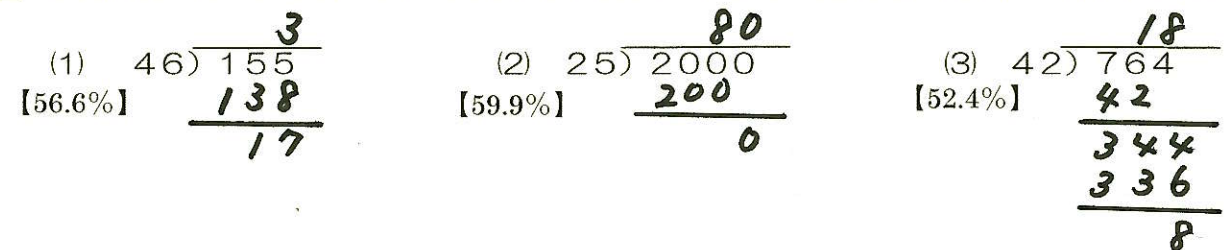 3
(1) 46)155
【56.6%】 138
17
80
(2) 25)2000
【59.9%】 200
0
18
(3) 42)764
【52.4%】 42
344
336
8